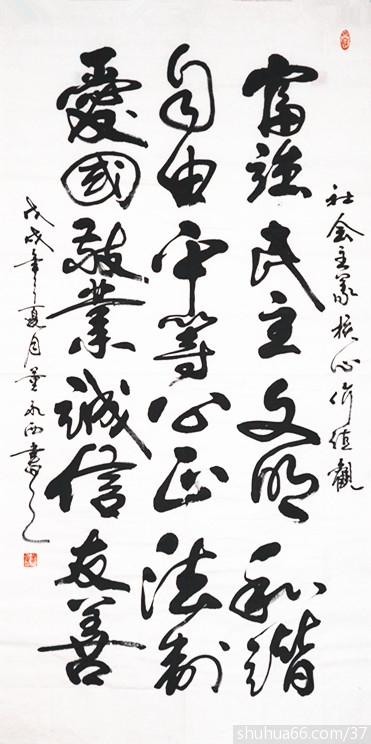 社会主義核心價值觀
富強民主文明和諧
自由平等公正法制
愛國敬業誠信友善
戊戌年夏月董永西書
shuhua66.com/37